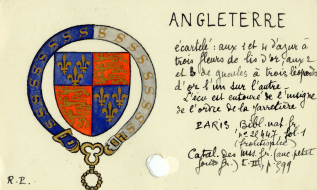 ANGLETERRE
écartelé : aux 1 et 4 d'azur à
trois fleurs de lis d'or, aux 2
et 3 de gueules à trois léopards
d'or l'un sur l'autre -
L'écu est entouré de l'insigne
de l'ordre de la Jarretière
PARIS, Bibl. nat. fr.
n° 22447, fol. 1
(frontispice)
Catal. des mss. fr. (anc. petit
fonds fr.) t. II, p. 399
R.P.